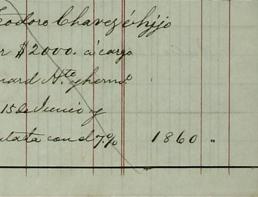 eodoro Chavez é hijo
r $2000. á cargo
uard Hte y hermo
15 de Junio y
con el 7% 1860 "